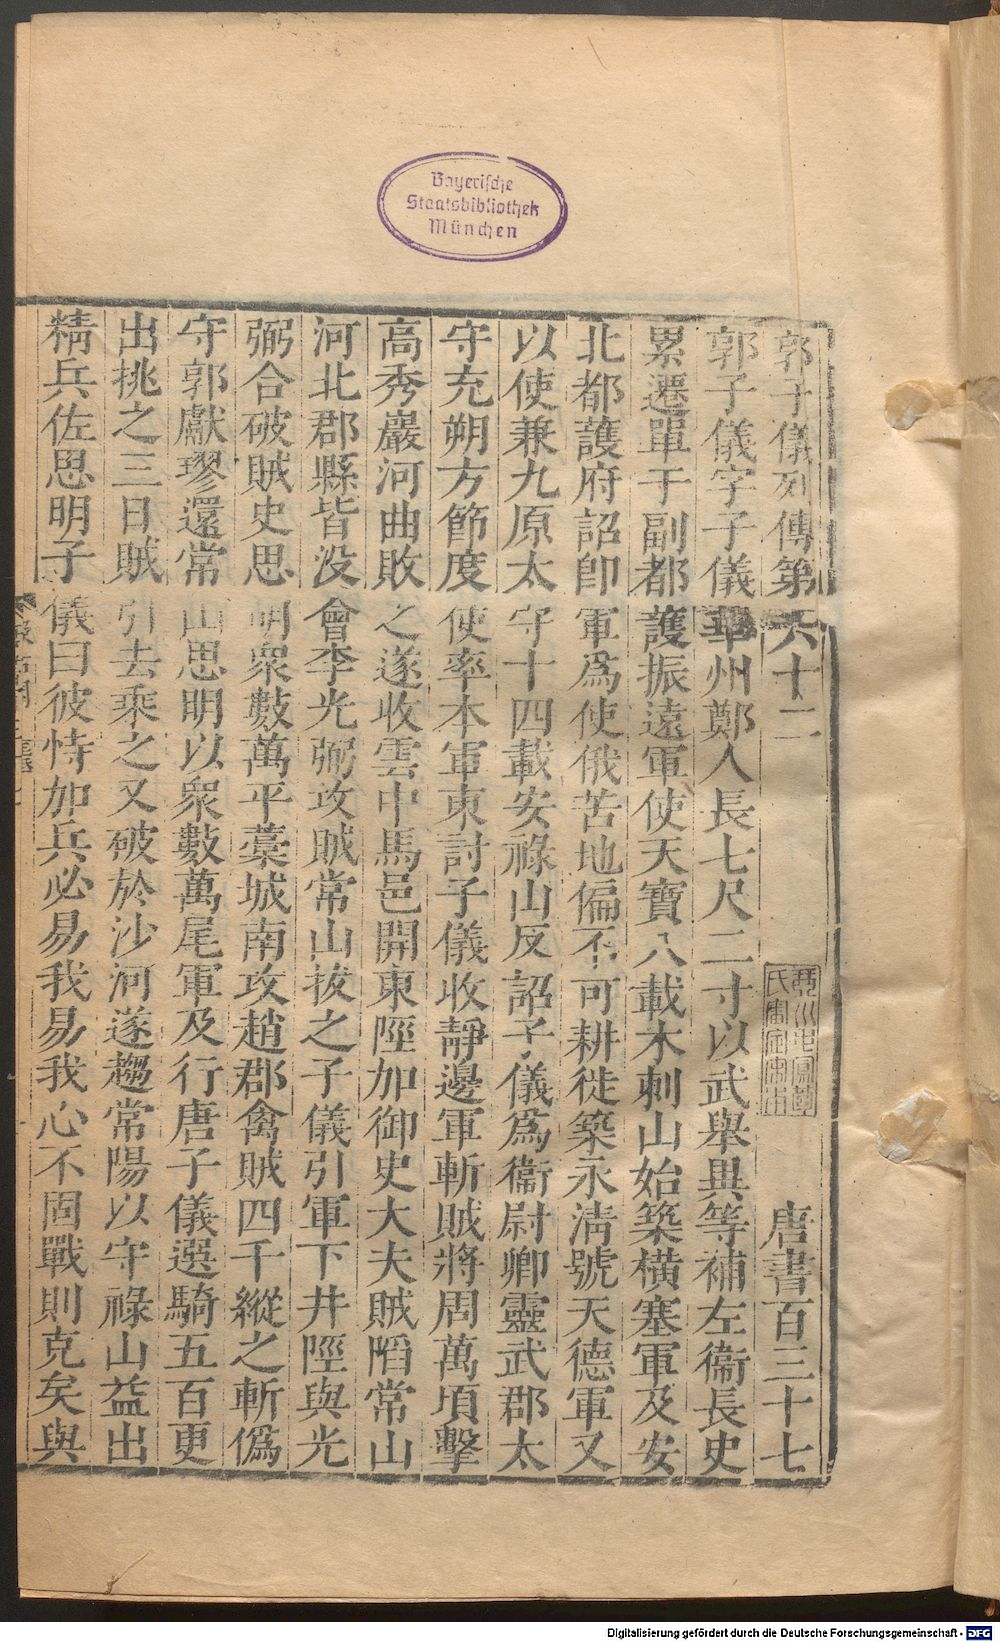 Bayerische
Staatsbibliothek
München
郭子儀列傳第六十二 唐書百三十七
郭子儀字子儀華州鄭人長七尺二寸以武舉異等補左衞長史
累遷單于副都護振遠軍使天寶八載木剌山始築橫塞軍及安
北都護府詔卽軍爲使俄苦地偏不可耕徙築永淸號天德軍又
以使兼九原太守十四載安祿山反詔子儀爲衞尉卿靈武郡太
守充朔方節度使率本軍東討子儀收靜邊軍斬賊將周萬頃擊
高秀巖河曲敗之遂收雲中馬邑開東陘加御史大夫賊䧟常山
河北郡縣皆没會李光弼攻賊常山拔之子儀引軍下井陘與光
弼合破賊史思明衆數萬平藁城南攻趙郡禽賊四千縱之斬僞
守郭獻璆還常山思明以衆數萬尾軍及行唐子儀選騎五百更
出挑之三日賊引去乘之又破於沙河遂趨常陽以守祿山益出
精兵佐思明子儀曰彼恃加兵必易我易我心不固戰則克矣與
Digitalisierung gefördert durch die Deutsche Forschungsgemeinschaft - DFG